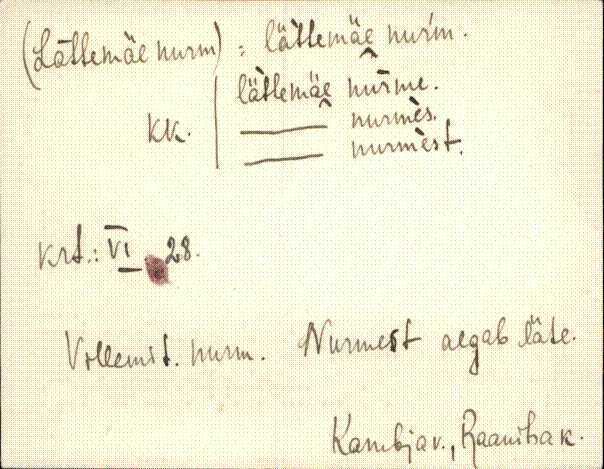 (Lättemäe nurm) : lä̀ttemäe nur̀m.
lä̀ttemäe nur̄me.
kk. ——— nurmès.
——— nurmèst.
krt.: VI 28.
Vollemst. nurm. Nurmest algab läte.
Kambja v., Raanitsa k.